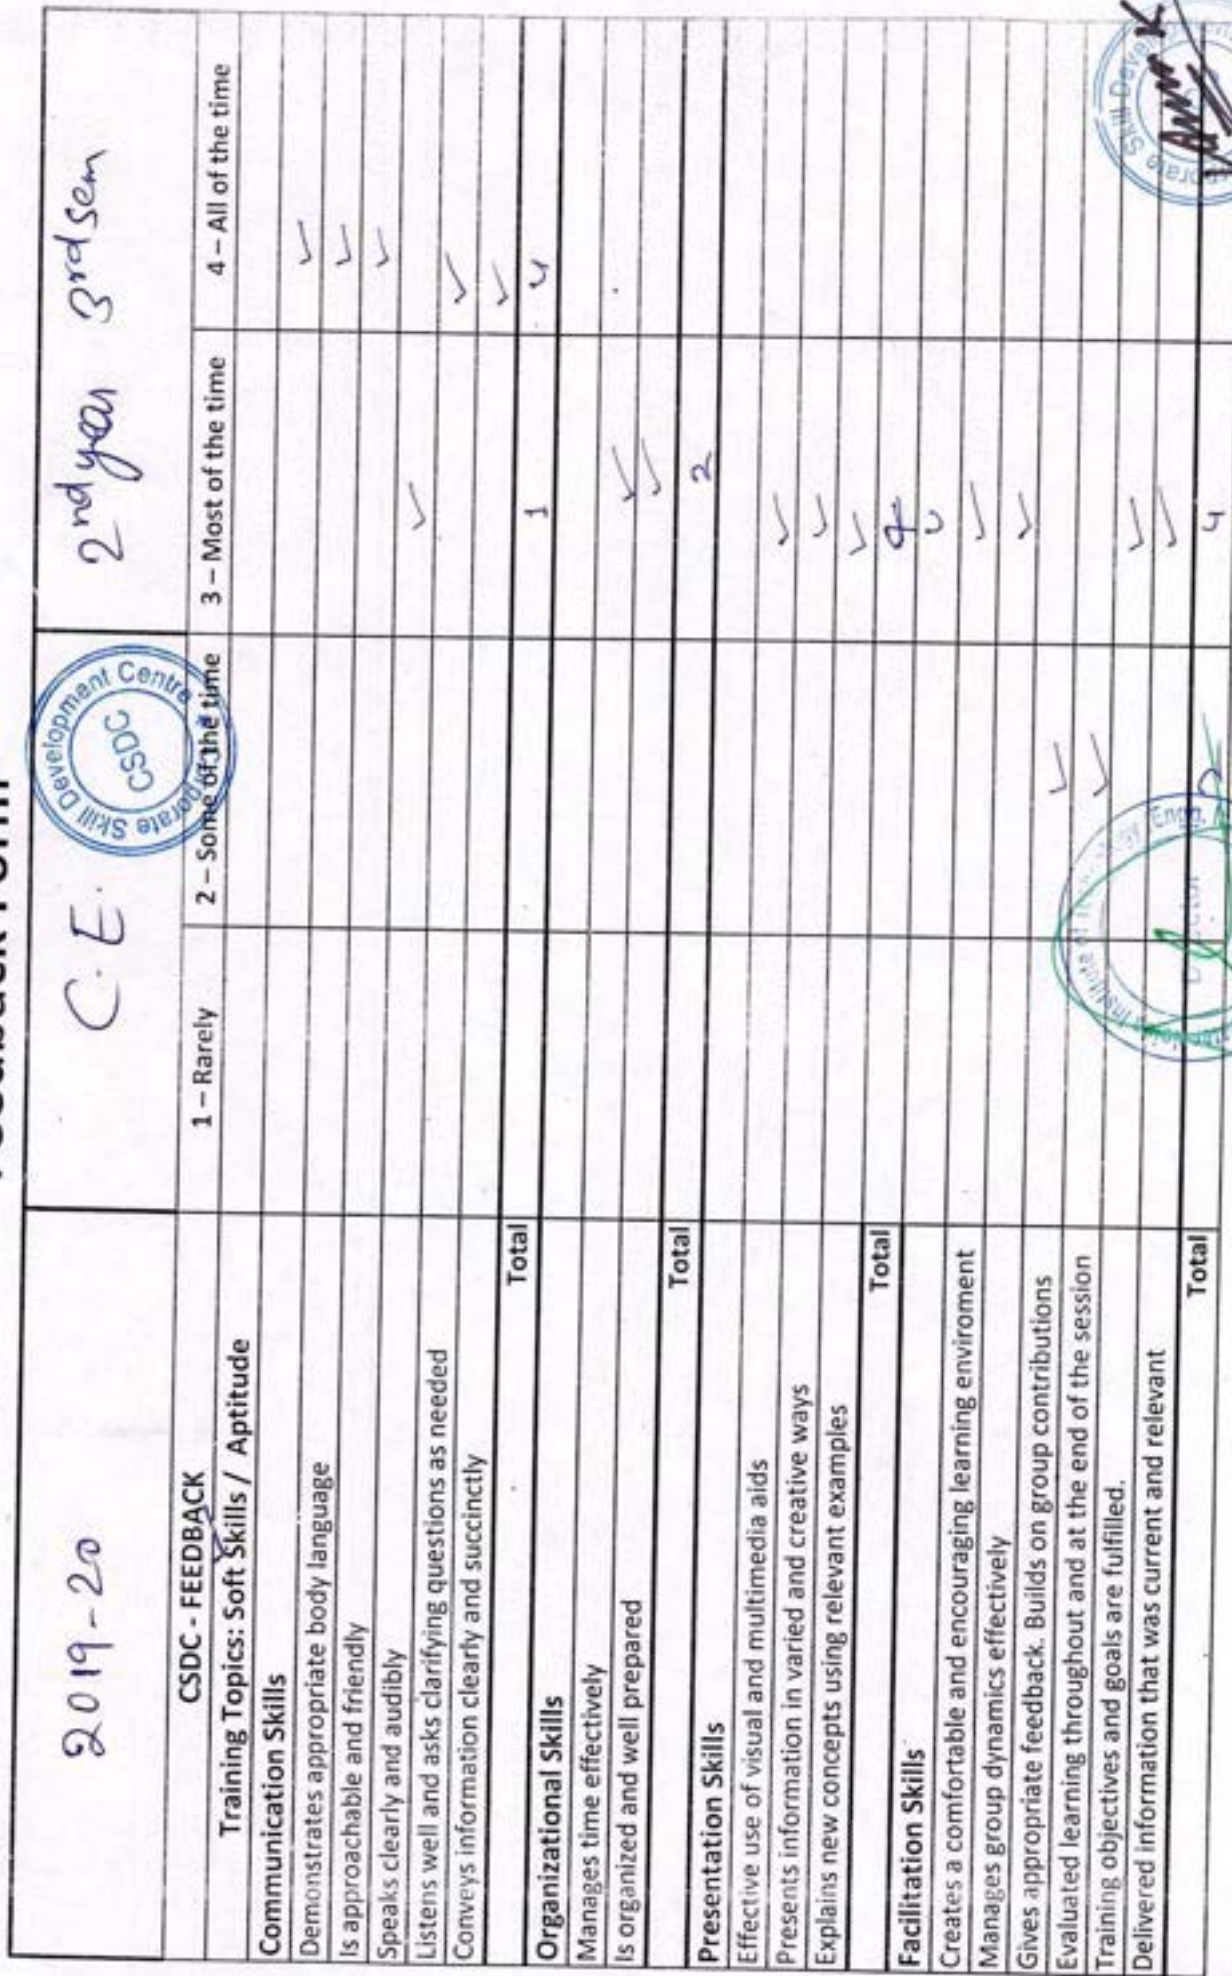 Feedback Form
2019-20 C.E. 2nd year 3rd Sem
Corporate Skill Development Centre
CSDC
CSDC - FEEDBACK 1 – Rarely 2 – Some of the time 3 – Most of the time 4 – All of the time
Training Topics: Soft Skills / Aptitude
Communication Skills
Demonstrates appropriate body language ✓
Is approachable and friendly ✓
Speaks clearly and audibly ✓
Listens well and asks clarifying questions as needed ✓
Conveys information clearly and succinctly ✓
✓
Total 1 4
Organizational Skills
Manages time effectively
Is organized and well prepared ✓
✓
Total 2
Presentation Skills
Effective use of visual and multimedia aids
Presents information in varied and creative ways ✓
Explains new concepts using relevant examples ✓
✓
Total
Facilitation Skills
Creates a comfortable and encouraging learning enviroment
Manages group dynamics effectively ✓
Gives appropriate feedback. Builds on group contributions ✓
Evaluated learning throughout and at the end of the session ✓
Training objectives and goals are fulfilled. ✓
Delivered information that was current and relevant ✓
✓
Total 2 4
Skill Deve
Institute of
Engg.